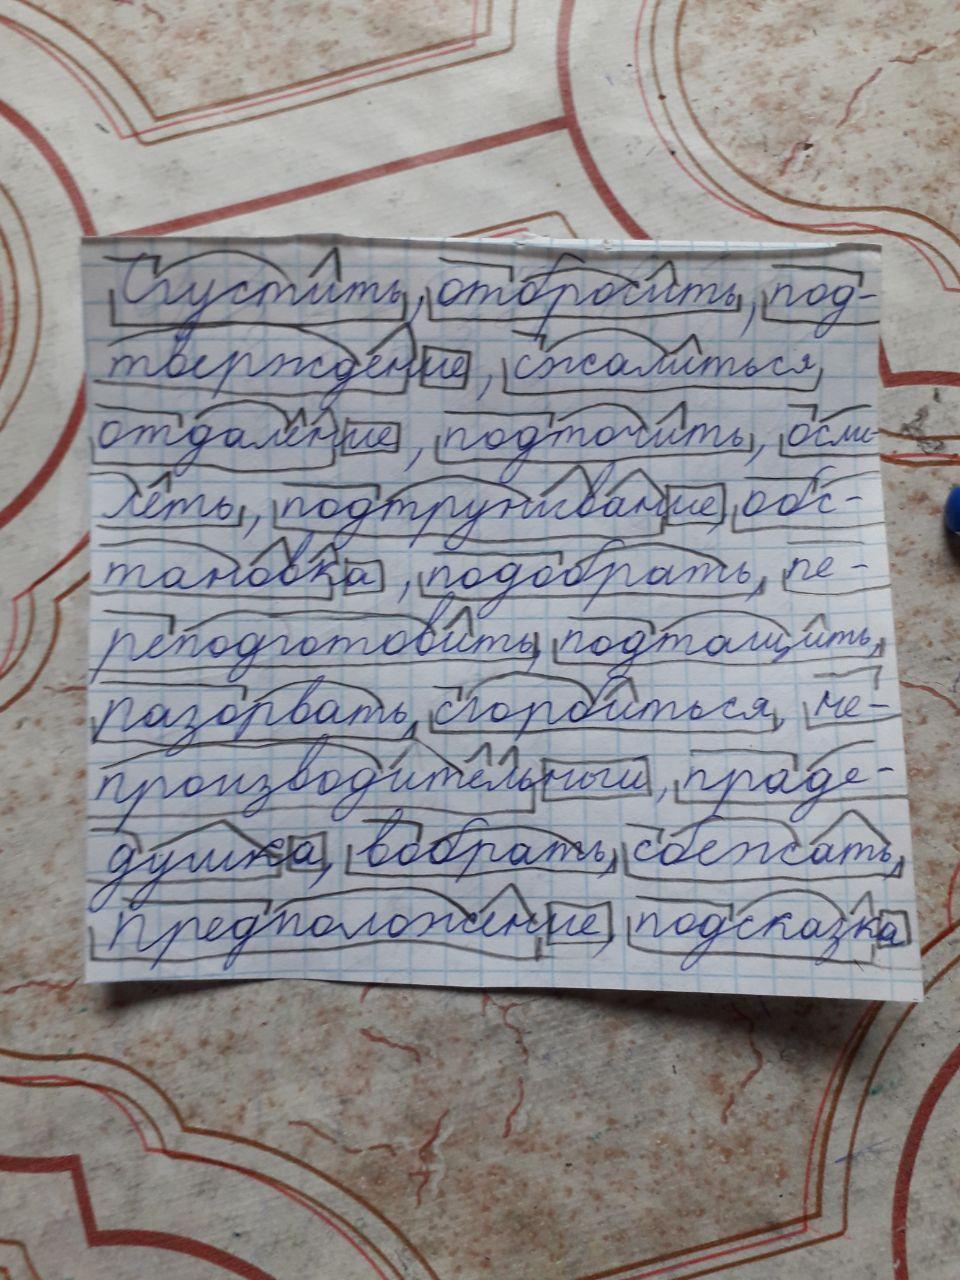 Сгустить, отбросить, под-
тверждение, сжалиться
отдаление, подточить, осме-
леть, подтрунивание, обс-
тановка, подобрать, пе-
реподготовить, подтащить,
разорвать, сгорбиться, не-
производительный, праде-
душка, вобрать, сбежать,
предположение, подсказка